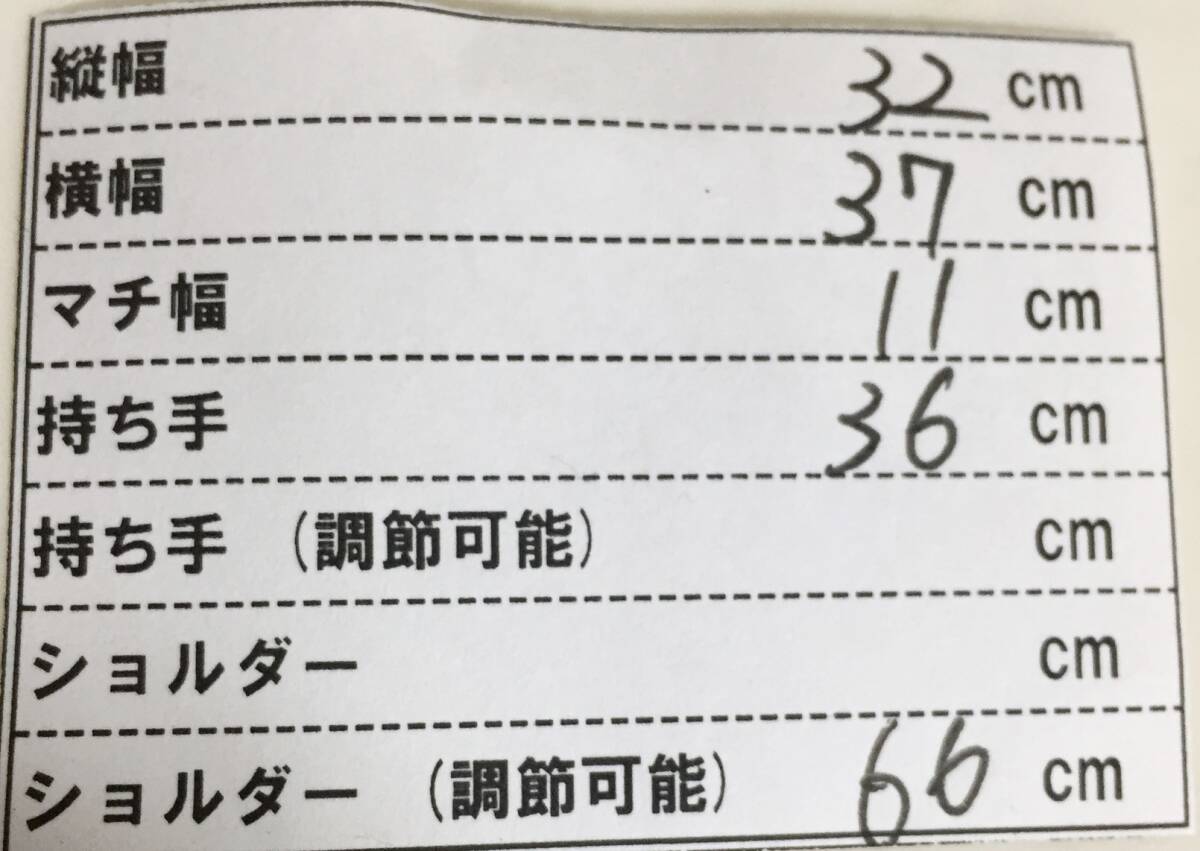 縦幅 32 cm
横幅 37 cm
マチ幅 11 cm
持ち手 36 cm
持ち手 (調節可能) cm
ショルダー cm
ショルダー (調節可能) 66 cm